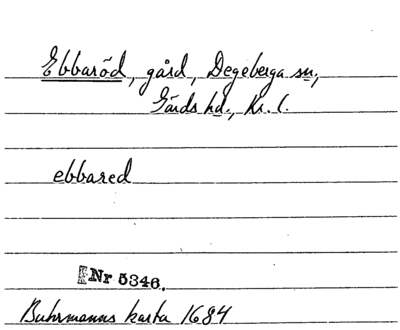 Ebbaröd, gård, Degeberga sn,
Gärds hd., Kr. l.
ebbared
Nr 5346.
Buhrmanns karta 1684